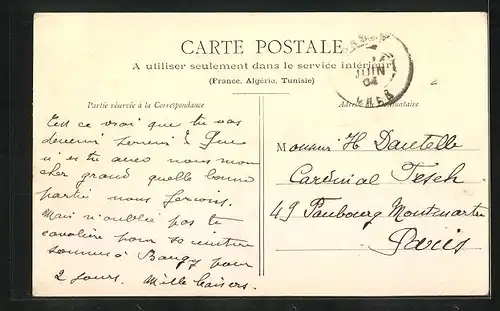 CARTE POSTALE
A utiliser seulement dans le service intérieur
(France, Algérie, Tunisie)
JUIN
04
CHER
Partie réservée à la Correspondance
Adresse du Destinataire
Est ce vrai que tu vas
devenir ! Que
n'es tu avec nous mon
cher grand quelle bonne
partie nous ferions.
Mais n'oublie pas ta
cavalière pour
sommes à Baugy pour
2 jours. Mille baisers.
Monsieur H Dautelle
Cardinal Fesch
49 Faubourg Montmartre
Paris